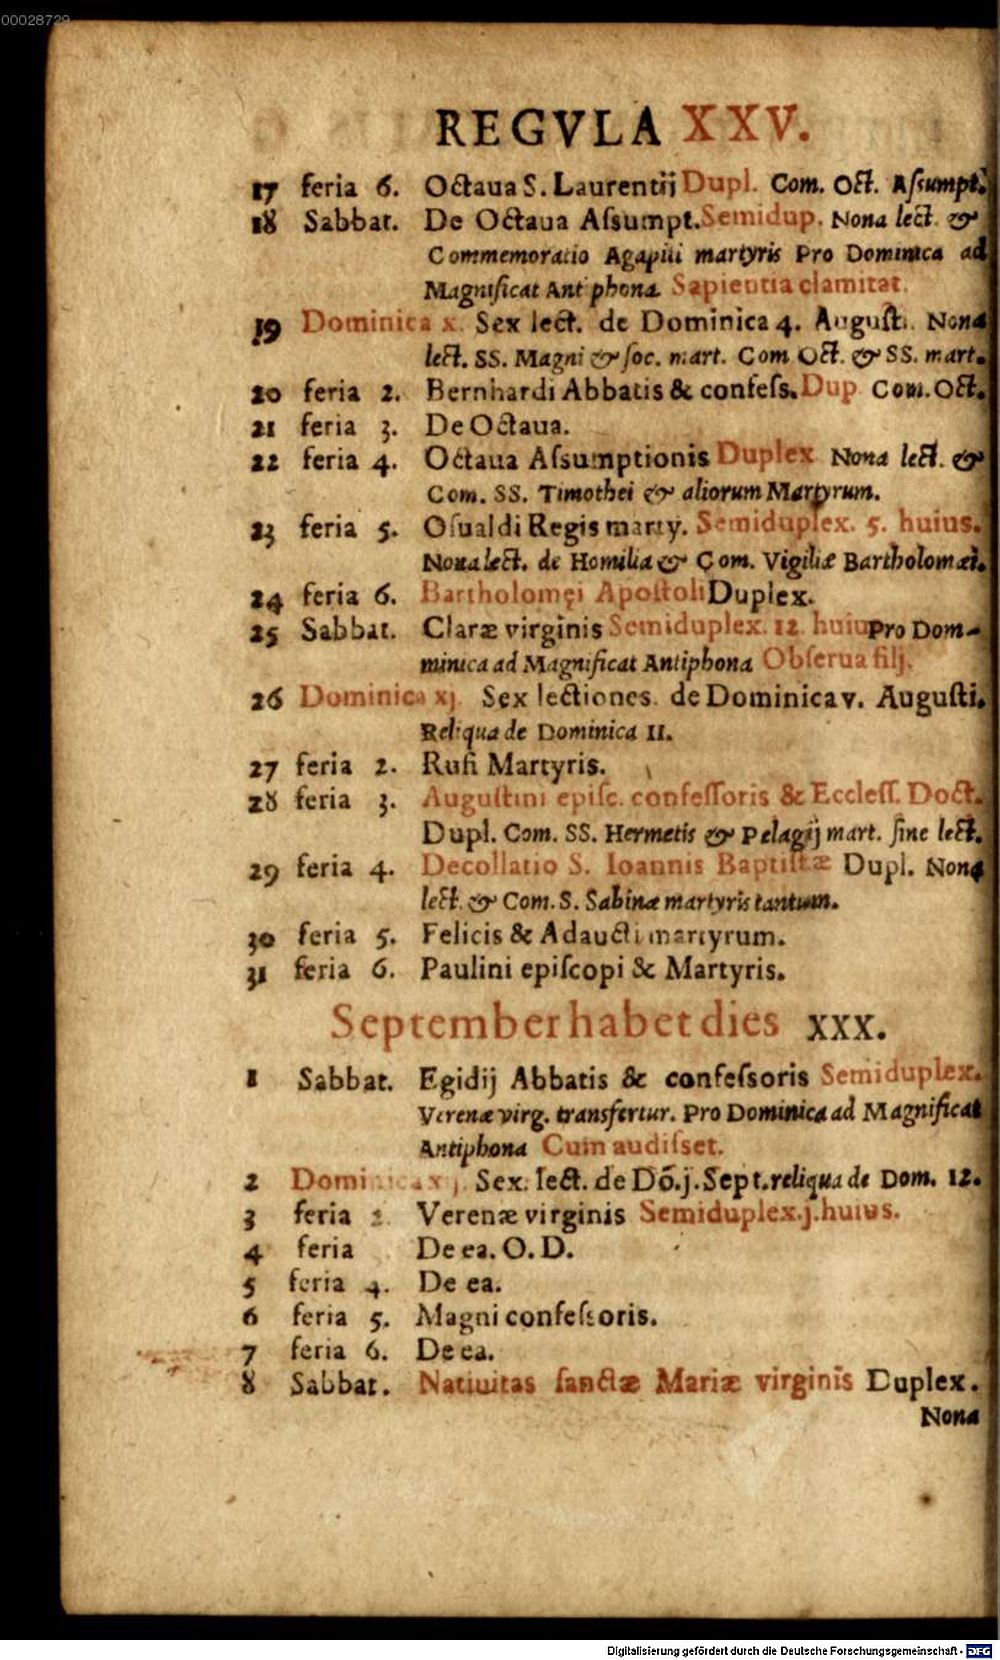 00028729
REGVLA XXV.
17 feria 6. Octaua S. Laurentij Dupl. Com. Oct. Aſsumpt.
18 Sabbat. De Octaua Aſsumpt. Semidup. Nona lect. &
Commemoratio Agapiti martyris Pro Dominica ad
Magnificat Antiphona Sapientia clamitat.
19 Dominica x. Sex lect. de Dominica 4. Auguſti. Nona
lect. SS. Magni & ſoc. mart. Com Oct. & SS. mart.
20 feria 2. Bernhardi Abbatis & confeſs. Dup Com. Oct.
21 feria 3. De Octaua.
22 feria 4. Octaua Aſsumptionis Duplex Nona lect. &
Com. SS. Timothei & aliorum Martyrum.
23 feria 5. Oſualdi Regis marty. Semiduplex. 5. huius.
Nona lect. de Homilia & Com. Vigiliæ Bartholomæi.
24 feria 6. Bartholomęi Apoſtoli Duplex.
25 Sabbat. Claræ virginis Semiduplex. 12. huius Pro Dom-
minica ad Magnificat Antiphona Obſerua filj.
26 Dominica xj. Sex lectiones de Dominica v. Auguſti.
Reliqua de Dominica II.
27 feria 2. Rufi Martyris.
28 feria 3. Auguſtini epiſc. confeſſoris & Eccleſſ. Doct.
Dupl. Com. SS. Hermetis & Pelagij mart. ſine lect.
29 feria 4. Decollatio S. Ioannis Baptiſtæ Dupl. Nona
lect. & Com. S. Sabinæ martyris tantum.
30 feria 5. Felicis & Adaucti martyrum.
31 feria 6. Paulini epiſcopi & Martyris.
September habet dies XXX.
1 Sabbat. Egidij Abbatis & confeſsoris Semiduplex.
Verenæ virg. transfertur. Pro Dominica ad Magnificat
Antiphona Cum audiſset.
2 Dominica Sex. lect. de Dõ. j. Sept. reliqua de Dom. 12.
3 feria 2. Verenæ virginis Semiduplex. j. huius.
4 feria De ea. O. D.
5 feria 4. De ea.
6 feria 5. Magni confeſsoris.
7 feria 6. De ea.
8 Sabbat. Natiuitas ſanctæ Mariæ virginis Duplex.
Nona
Digitalisierung gefördert durch die Deutsche Forschungsgemeinschaft - DFG